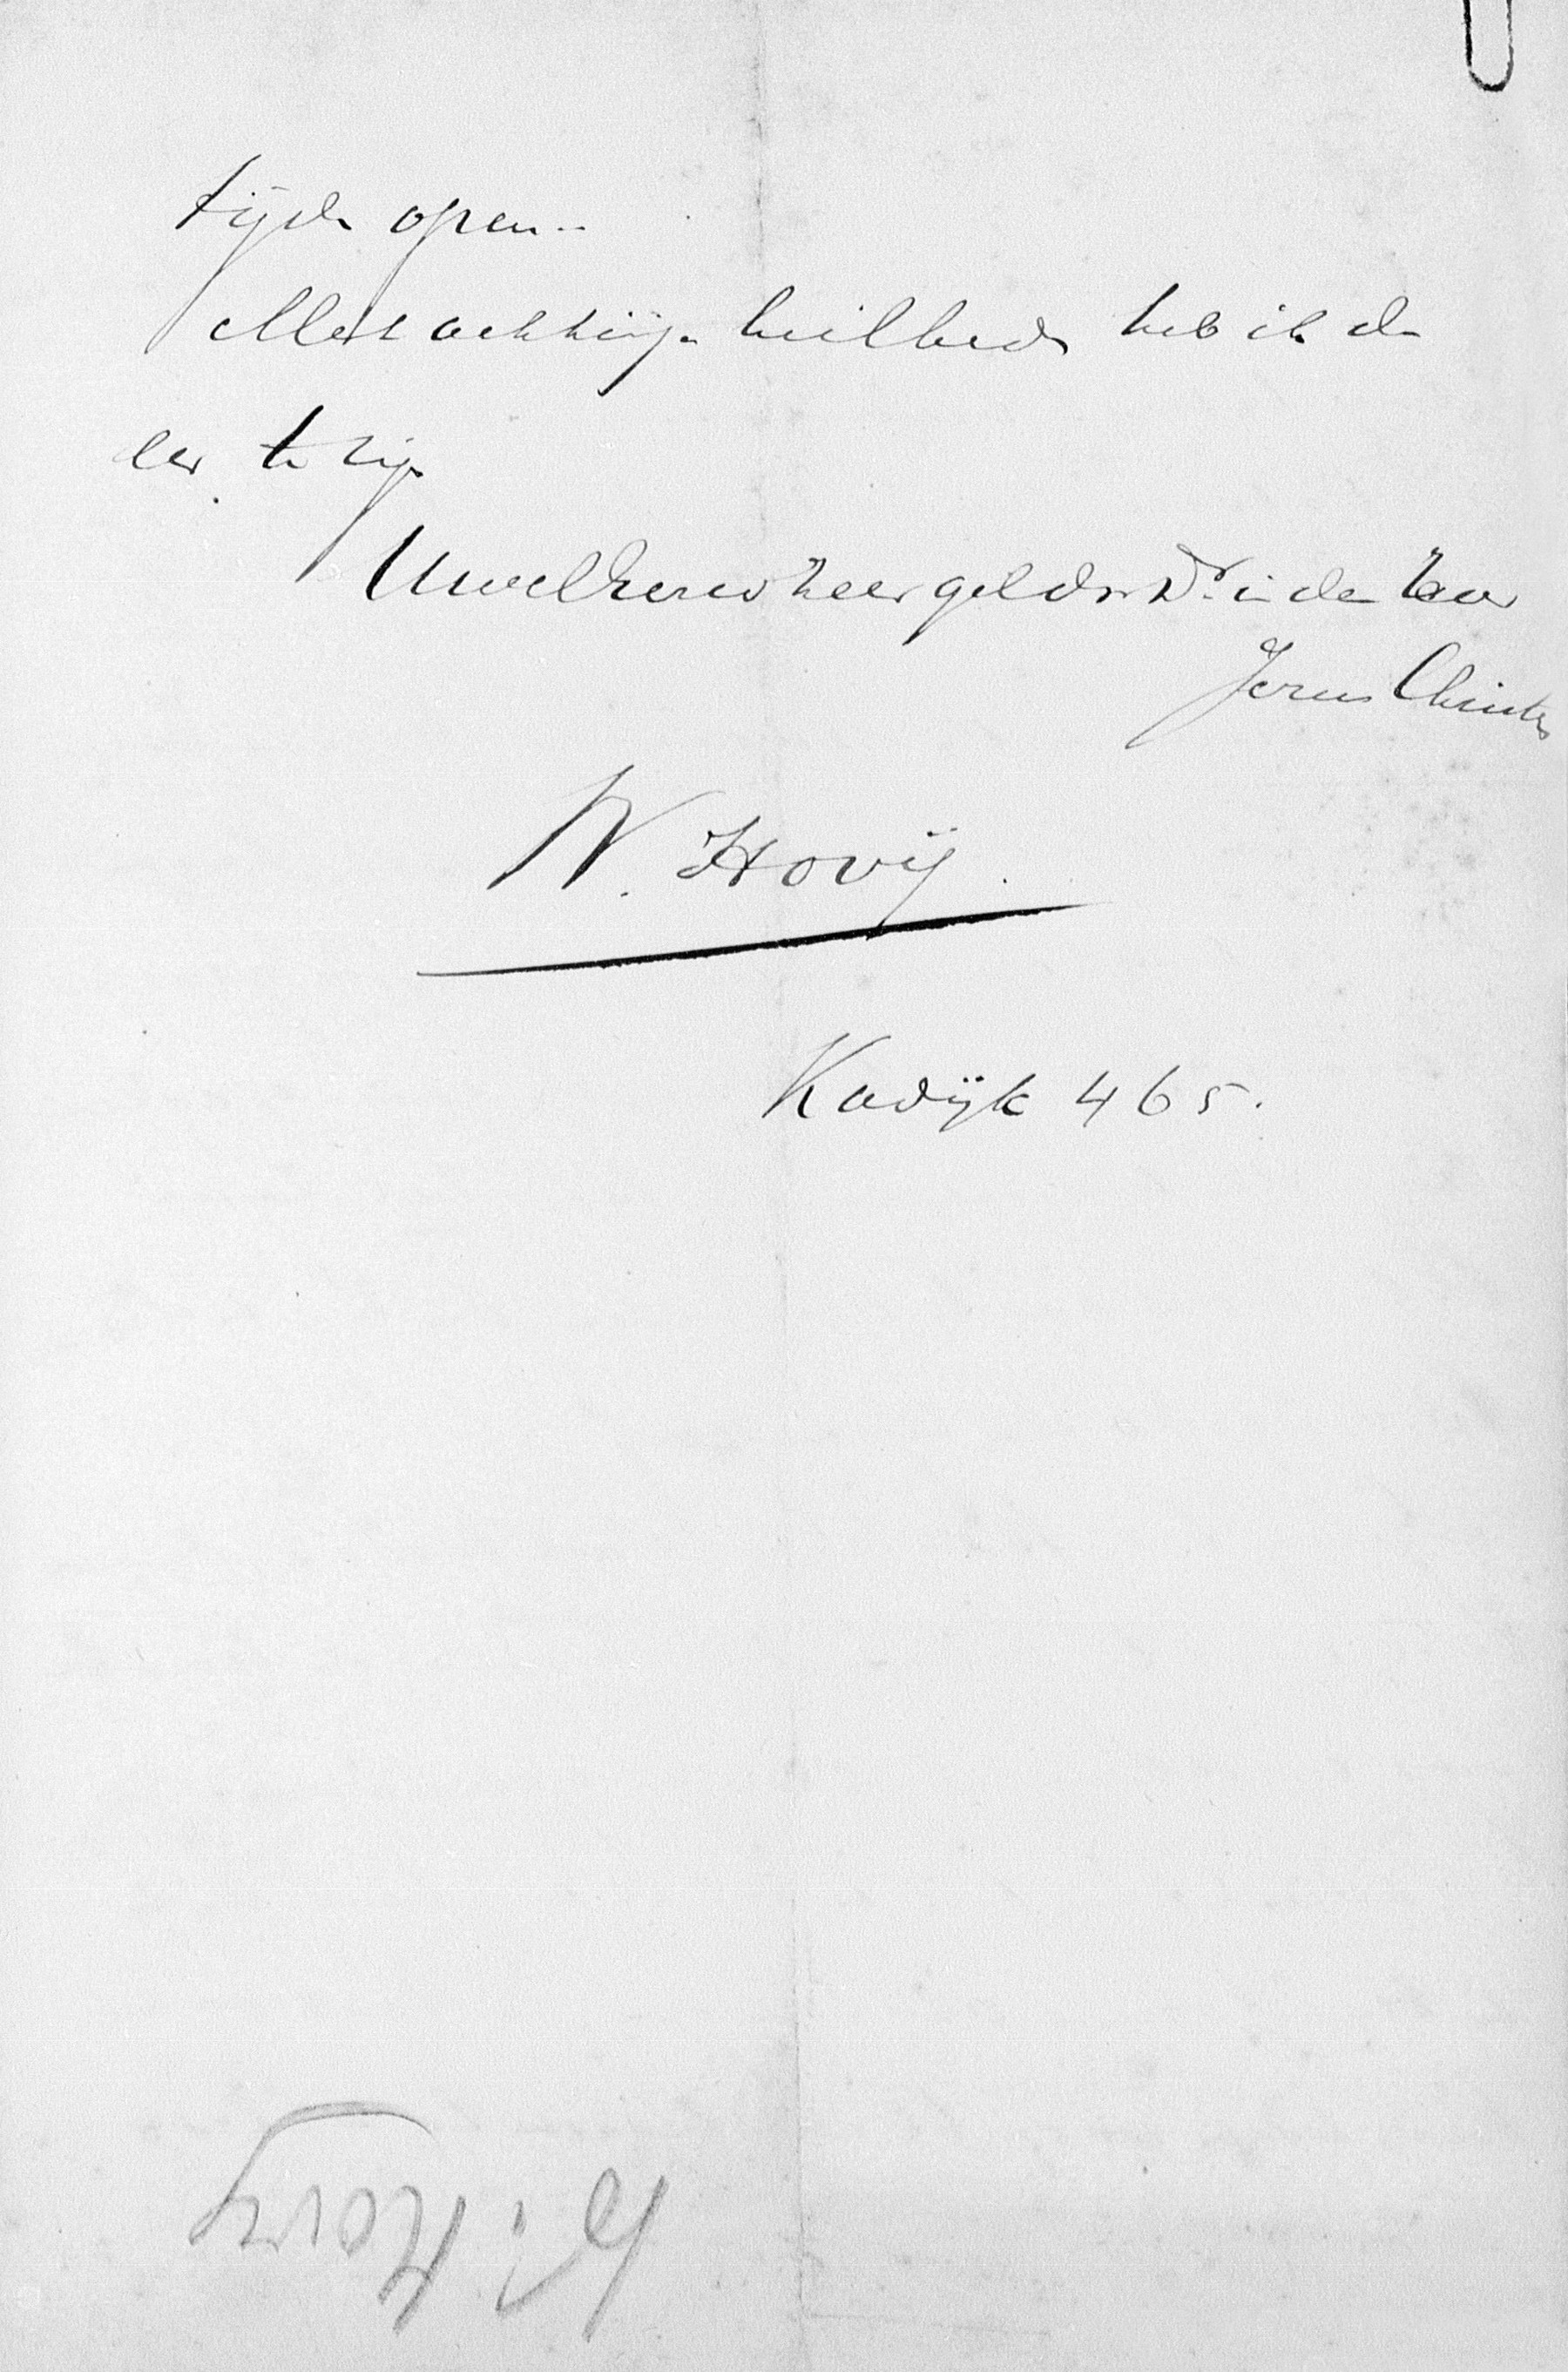 tijde open..
Met achting & heilbede heb ik de
eer te zijn
UwelEerwZeergel Dr Dr in den Heer
Jezus Christus
W. Hovij.
Kadijk 465.
W. Hovy